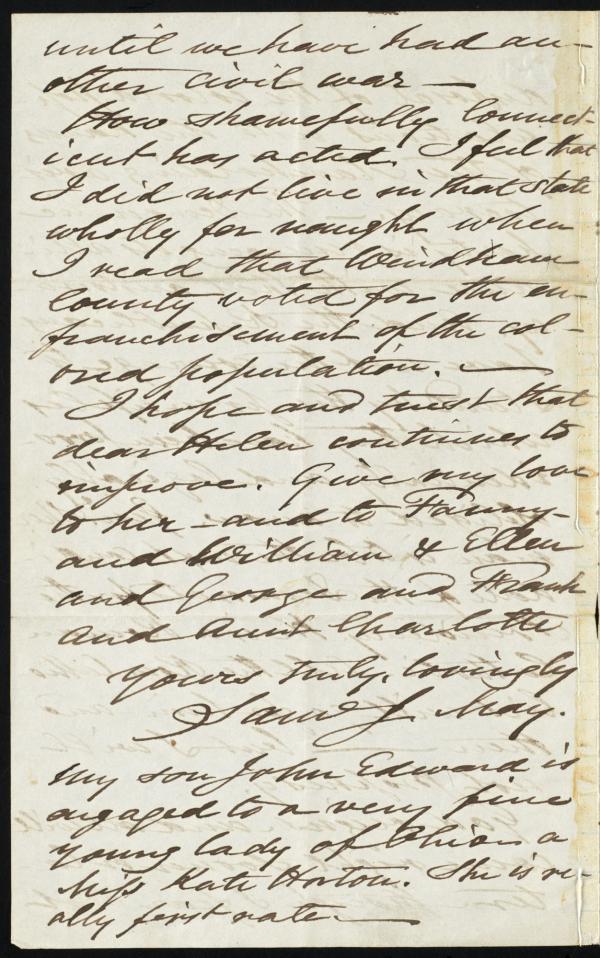 until we have had an-
other civil war —
How shamefully Connect-
icut has acted. I feel that
I did not live in that state
wholly for naught when
I read that Windham
County voted for the en-
franchisement of the col-
ored population. —
I hope and trust that
dear Helen continues to
improve. Give my love
to her – and to Fanny –
and William & Ellen
and George and Frank
and Aunt Charlotte
Yours truly, lovingly
Saml J. May.
My son John Edward is
engaged to a very fine
young lady of Ohio – a
Miss Kate Horton. She is re-
ally first rate. —